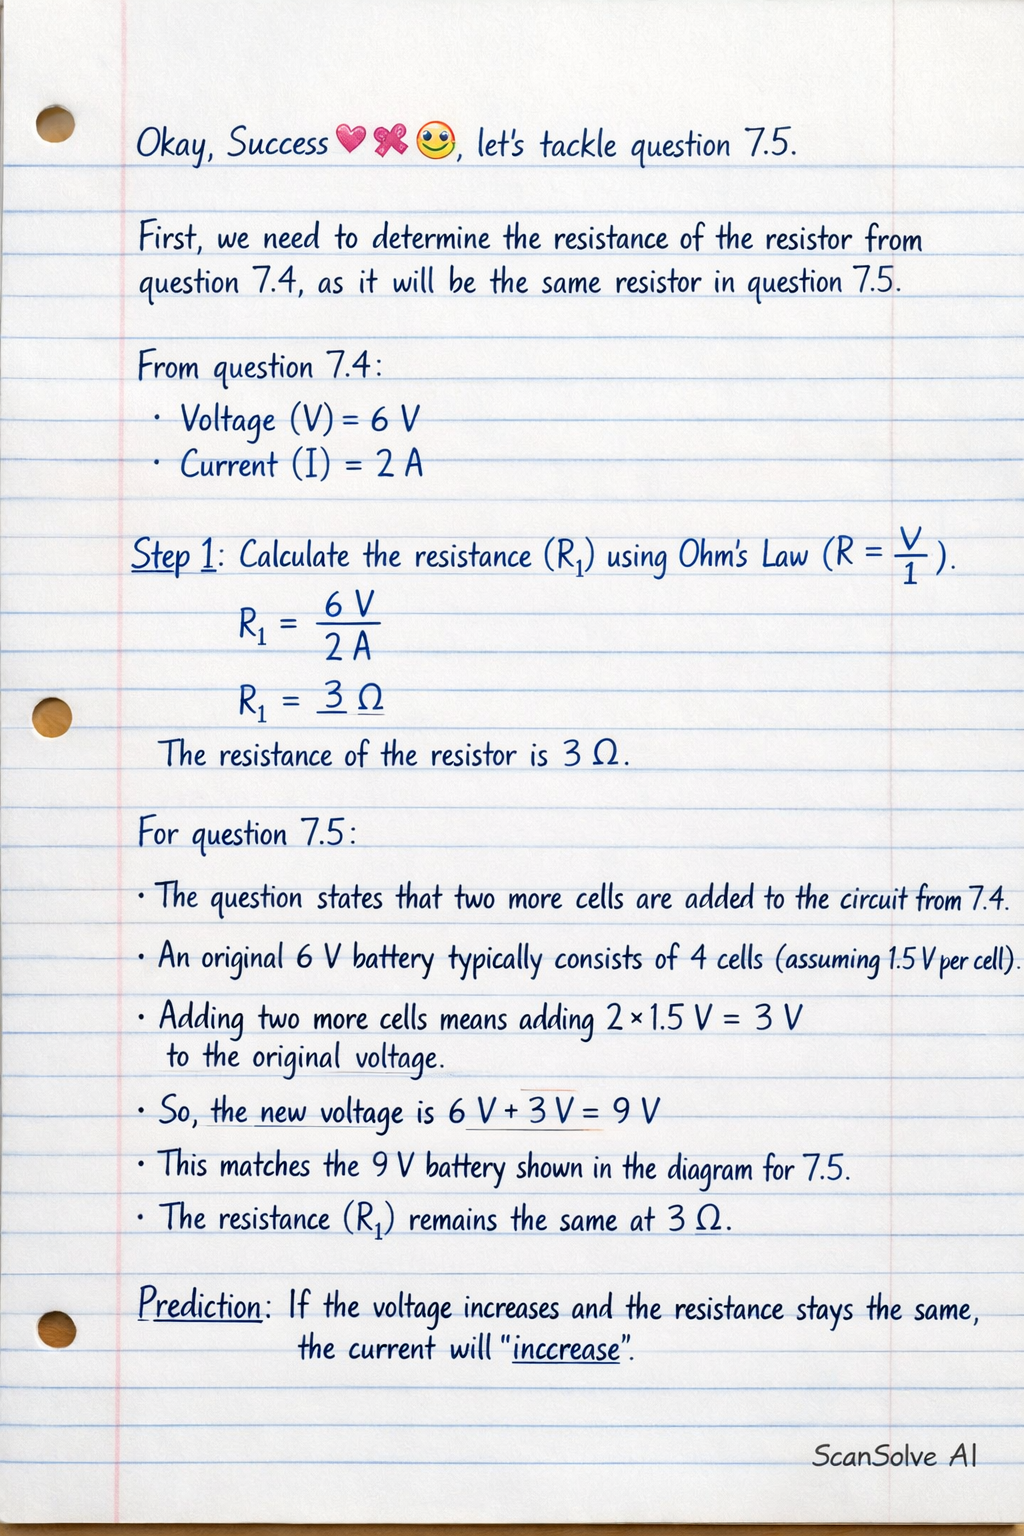 Okay, Success 💗🎀🙂, let's tackle question 7.5.
First, we need to determine the resistance of the resistor from
question 7.4, as it will be the same resistor in question 7.5.
From question 7.4:
· Voltage (V) = 6 V
· Current (I) = 2 A
Step 1: Calculate the resistance (R₁) using Ohm's Law (R = V/1).
R₁ = 6 V / 2 A
R₁ = 3 Ω
The resistance of the resistor is 3 Ω.
For question 7.5:
· The question states that two more cells are added to the circuit from 7.4.
· An original 6 V battery typically consists of 4 cells (assuming 1.5 V per cell).
· Adding two more cells means adding 2 × 1.5 V = 3 V
to the original voltage.
· So, the new voltage is 6 V + 3 V = 9 V
· This matches the 9 V battery shown in the diagram for 7.5.
· The resistance (R₁) remains the same at 3 Ω.
Prediction: If the voltage increases and the resistance stays the same,
the current will "inccrease".
ScanSolve AI